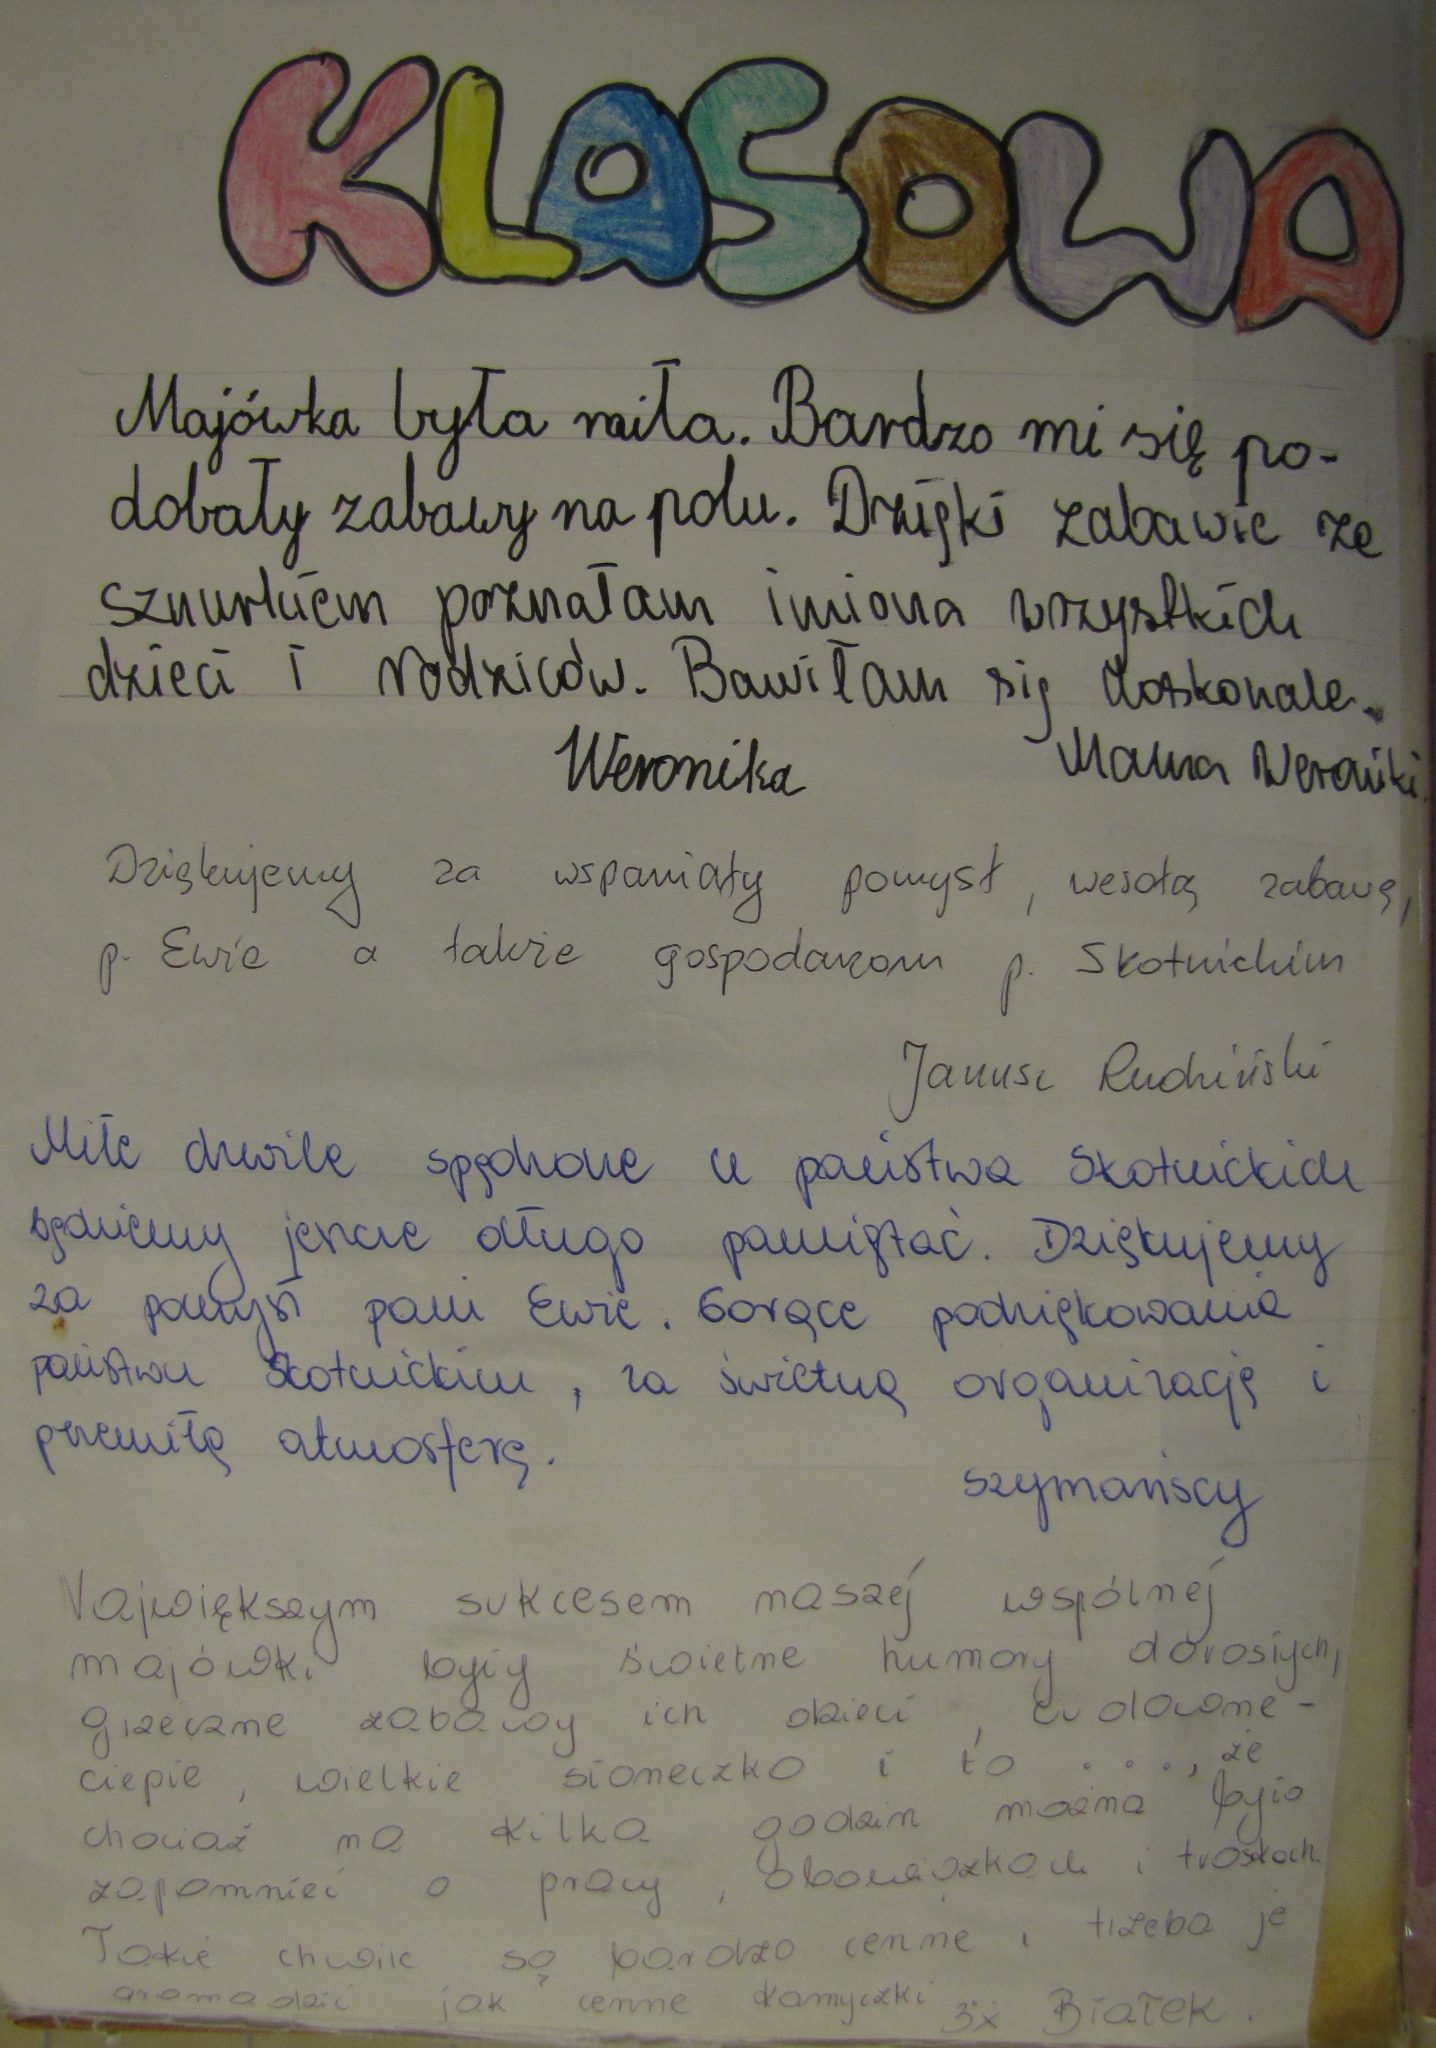 KLASOWA
Majówka była miła. Bardzo mi się po-
dobały zabawy na polu. Dzięki zabawie ze
sznurkiem poznałam imiona wszystkich
dzieci i rodziców. Bawiłam się doskonale.
Weronika Mama Weroniki
Dziękujemy za wspaniały pomysł, wesołą zabawę,
p. Ewie a także gospodarzom p. Skotnickim
Janusz Rudziński
Miłe chwile spędzone u państwa Skotnickich
będziemy jeszcze długo pamiętać. Dziękujemy
za pomysł pani Ewie. Gorące podziękowania
państwu Skotnickim, za świetną organizację i
przemiłą atmosferę.
Szymańscy
Największym sukcesem naszej wspólnej
majówki były świetne humory dorosłych,
grzeczne zabawy ich dzieci, cudowne -
ciepłe, wielkie słoneczko i to ...., że
chociaż na kilka godzin można było
zapomnieć o pracy, obowiązkach i troskach.
Takie chwile są bardzo cenne i trzeba je
gromadzić jak cenne kamyczki 3x Białek.